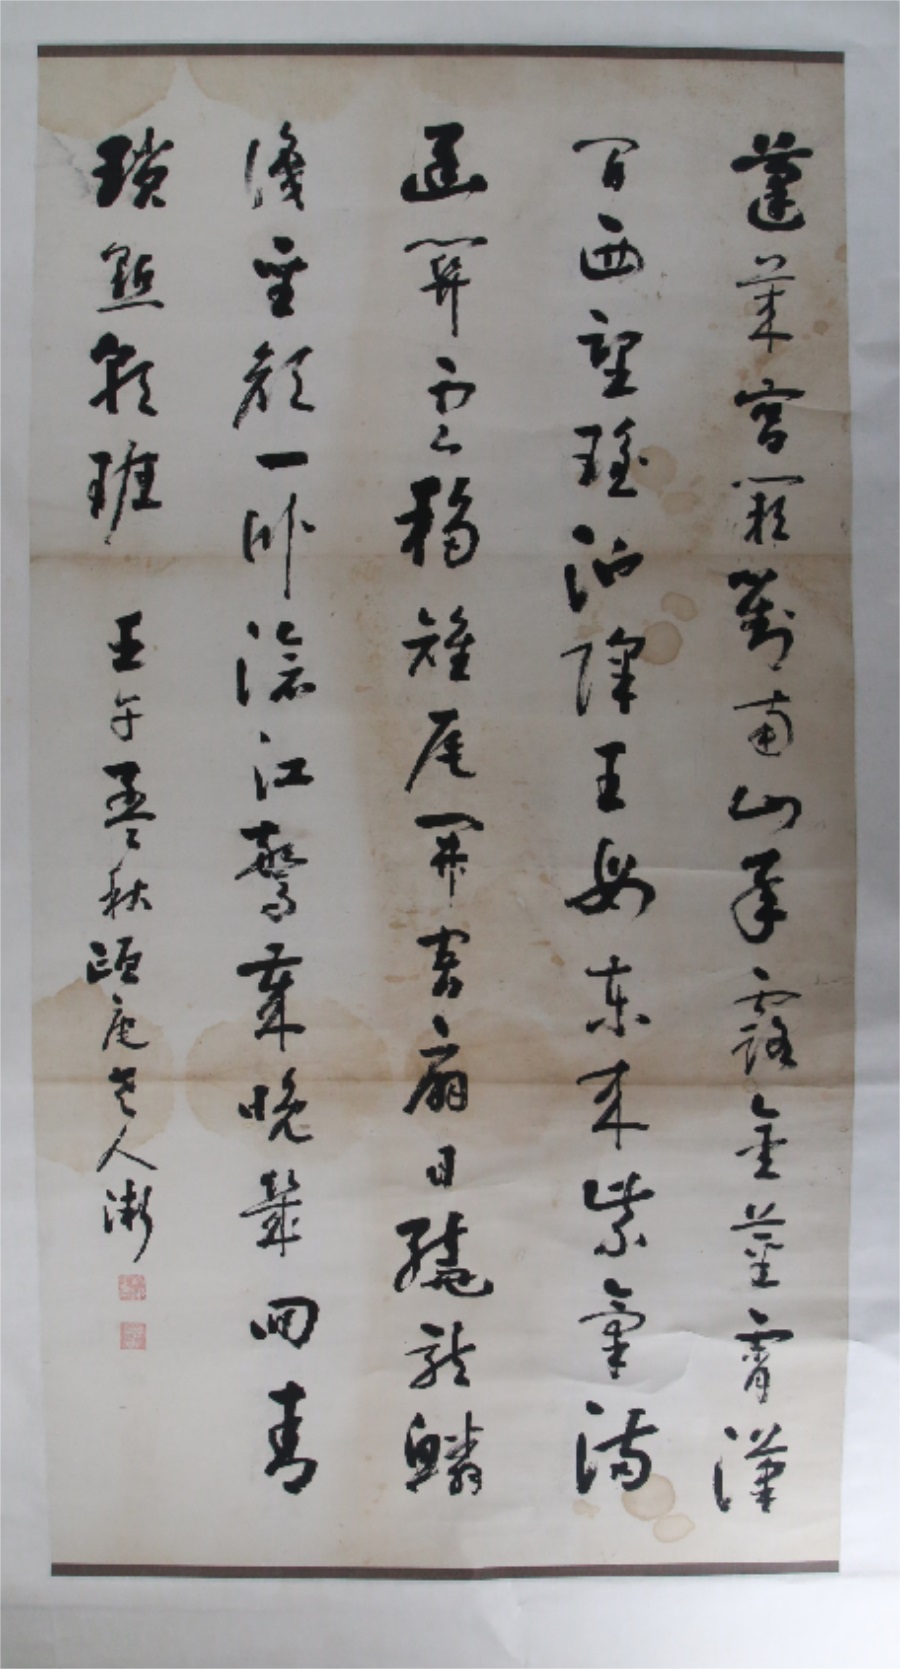 蓬萊宮闕對南山承露金莖霄漢
間西望瑤池降王母東來紫氣滿
函關雲移雉尾開宮扇日繞龍鱗
識聖顏一臥滄江驚歲晚幾回青
瑣點朝班 壬午孟秋頤庵老人